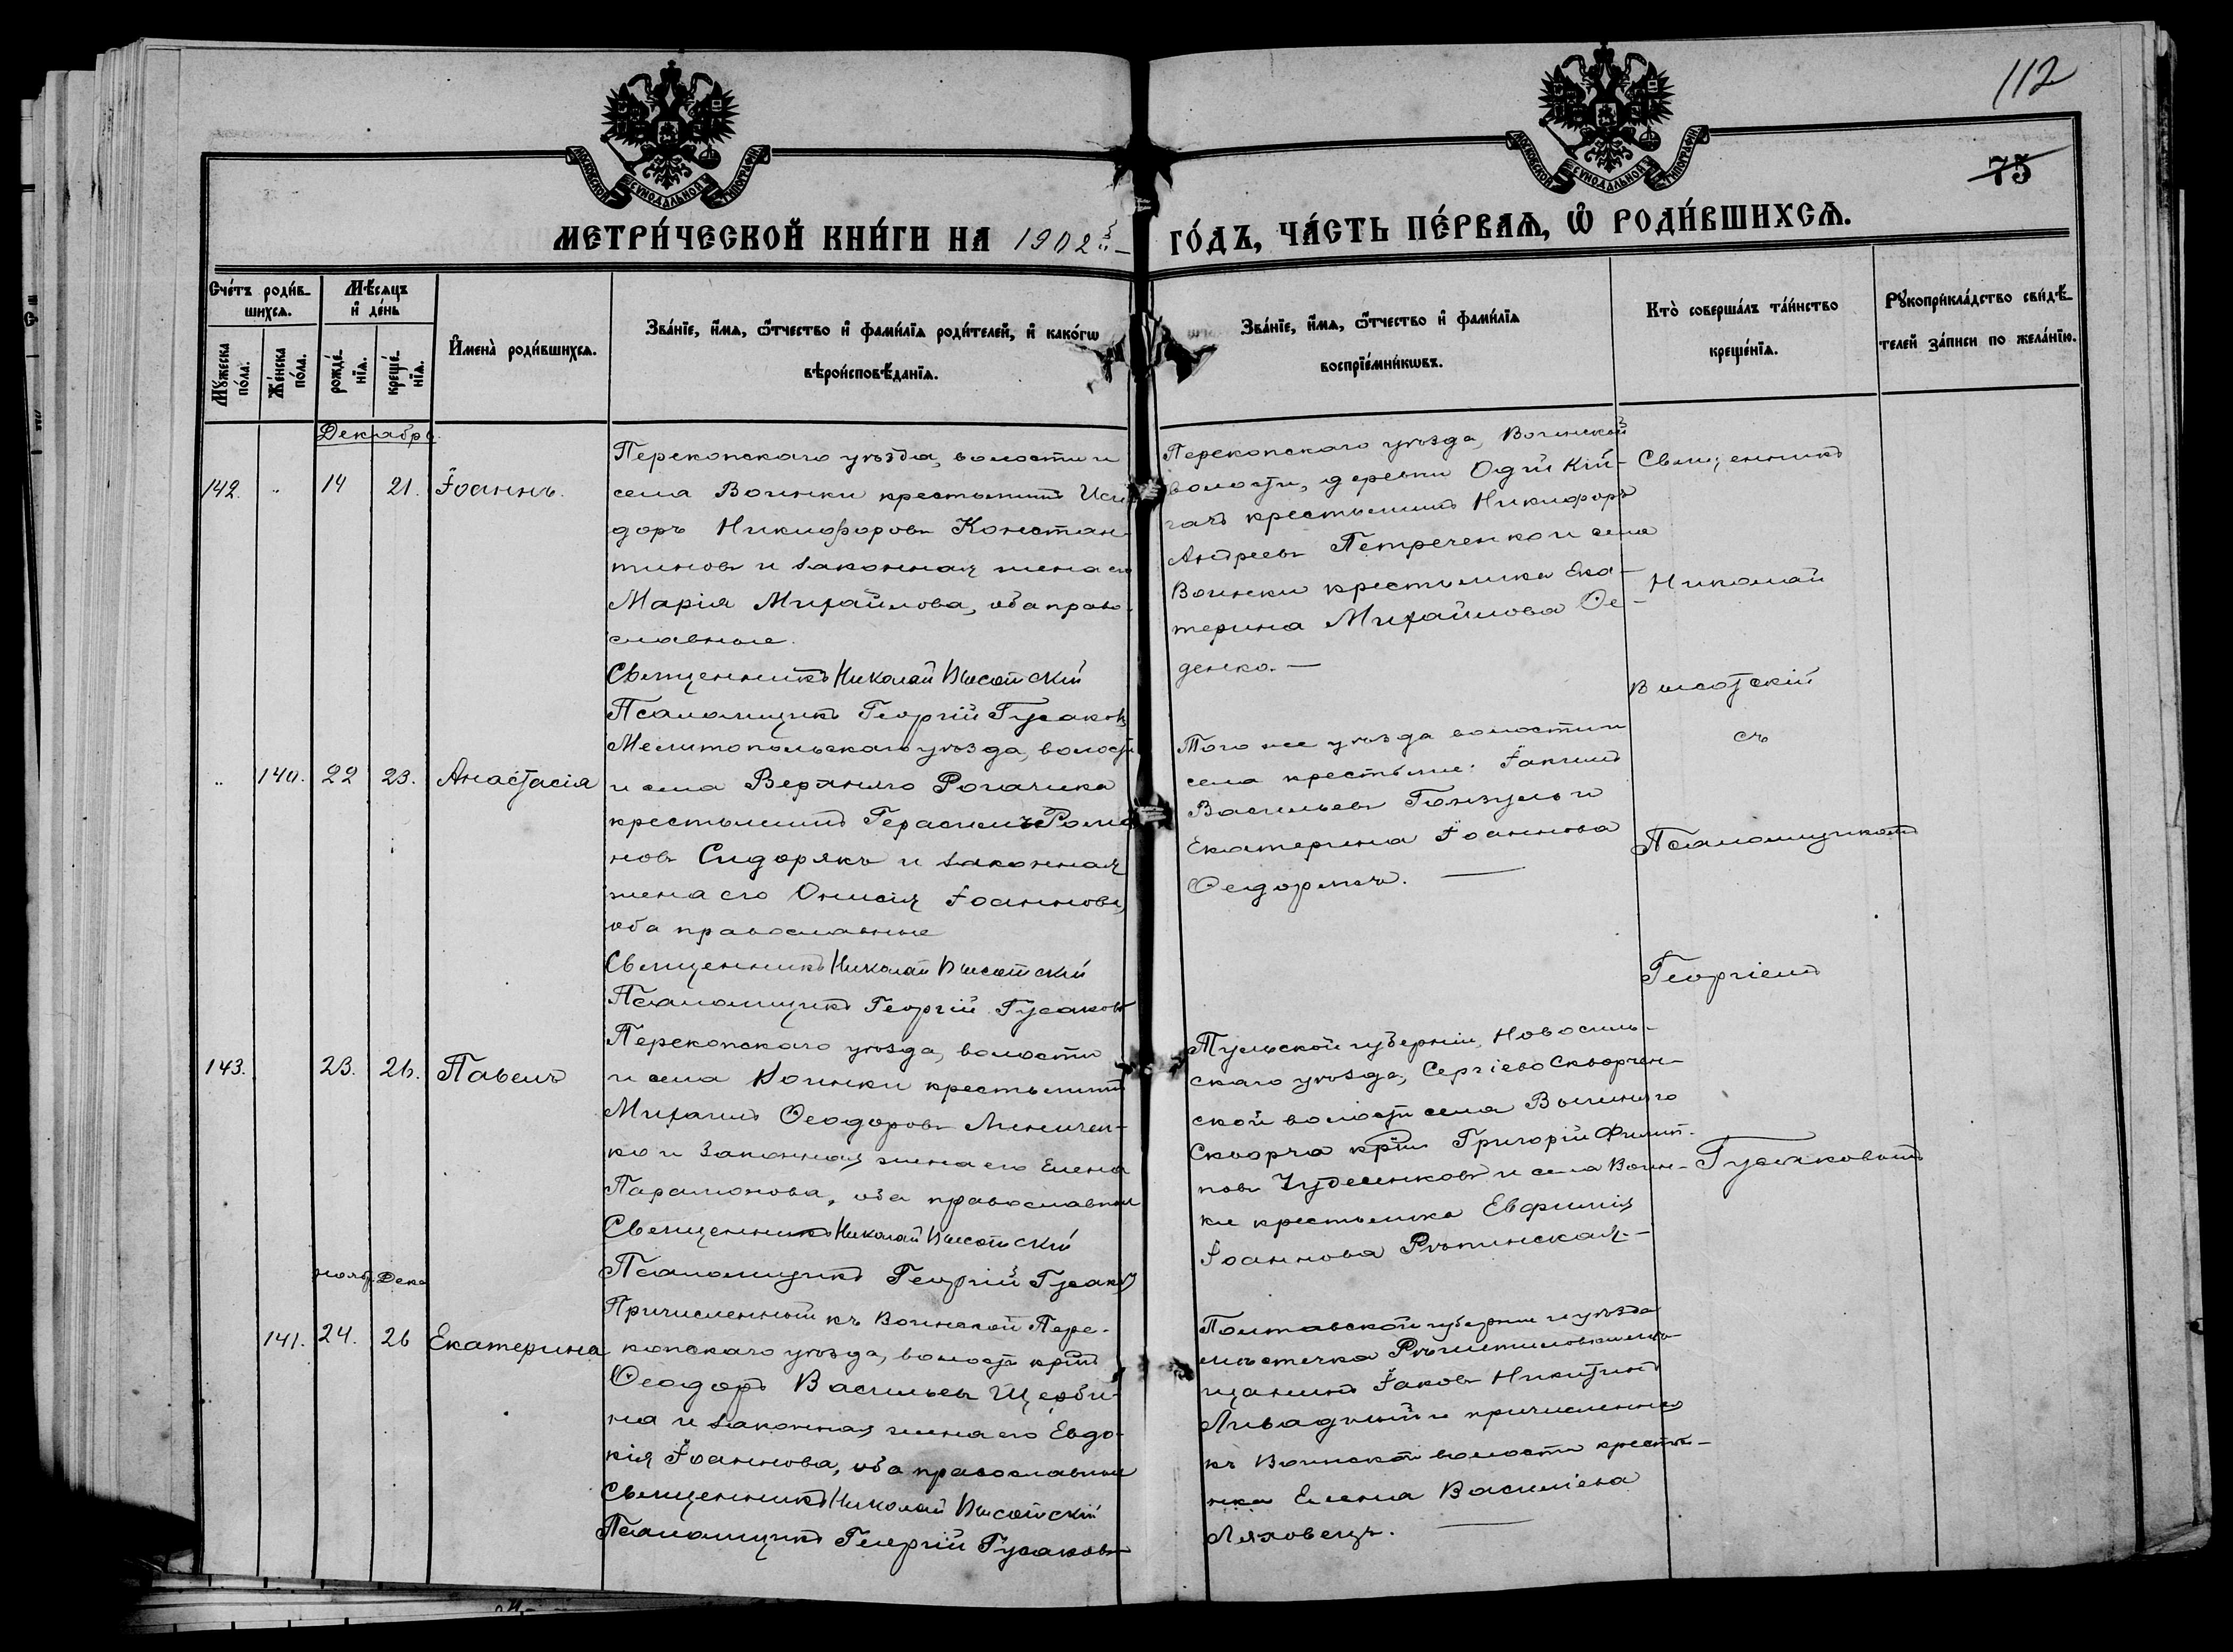 112
75
МОСКОВСКОЙ СѴНОДАЛЬНОЙ ТИПОГРАФІИ
МОСКОВСКОЙ СѴНОДАЛЬНОЙ ТИПОГРАФІИ
МЕТРИ́ЧЕСКОЙ КНИ́ГИ НА 1902й
ГО́ДЪ, ЧА́СТЬ ПЕ́РВАѦ, Ѽ РОДИ́ВШИХСѦ.
Счéтъ роди́в-
шихсѧ.
Мꙋ́жеска
по́ла.
Жéнска
по́ла.
Мѣ́сѧцъ
и҆ дéнь
рождé-
нїѧ.
крещé-
нїѧ.
И҆мена̀ роди́вшихсѧ.
Зва́нїе, и҆́мѧ, ѻ҆́тчество и҆ фами́лїѧ роди́телей, и҆ како́гѡ
вѣроисповѣ́данїѧ.
Зва́нїе, и҆́мѧ, ѻ҆́тчество и҆ фами́лїѧ
воспрїе́мникѡвъ.
Кто̀ соверша́лъ та́инство
креще́нїѧ.
Рꙋкоприкла́дство свидѣ́-
телей за́писи по жела́нїю.
Декабрь.
142. " 14 21. Іоаннъ.
Перекопскаго уѣзда, волости и
села Воинки крестьянинъ Иси-
доръ Никифоровъ Констан-
тиновъ и законная жена его
Марія Михайлова, оба право-
славные.
Священникъ Николай Высотскій
Псаломщикъ Георгій Гусаковъ
Перекопскаго уѣзда, Воинской
волости, деревни
крестьянинъ Никифоръ
Андреевъ Петреченко и села
Воинки крестьянка Ека-
терина Михайлова Ѳе-
денко.—
Священникъ
Николай
Высотскій
съ
Псаломщикомъ
Георгіемъ
Гусаковымъ
" 140. 22 23. Анастасія
Мелитопольскаго уѣзда, волости
и села Верхняго Рогачика
крестьянинъ Герасимъ Рома-
новъ Сидорякъ и законная
жена его Онисія Іоаннова,
оба православные
Священникъ Николай Высотскій
Псаломщикъ Георгій Гусаковъ
Того же уѣзда волости и
села крестьяне: Іакимъ
Васильевъ и
Екатерина Іоаннова
143. 23. 26. Павелъ
Перекопскаго уѣзда, волости
и села Воинки крестьянинъ
Михаилъ Ѳеодоровъ Линичен-
ко и законная жена его Елена
Парамонова, оба православные
Священникъ Николай Высотскій
Псаломщикъ Георгій Гусаковъ
Тульской губерніи, Новосиль-
скаго уѣзда, Сергіево Скворчен-
ской волости села
Скворча кр̃нъ Григорій Филип-
повъ и села Воин-
ки крестьянка Евфимія
Іоаннова Рѣпинская.—
нояб. Дека
141. 24. 26 Екатерина
Причисленный къ Воинской Пере-
копскаго уѣзда, волости кр̃нъ
Ѳеодоръ Васильевъ Щерби-
на и законная жена его Евдо-
кія Іоаннова, оба православные
Священникъ Николай Высотскій
Псаломщикъ Георгій Гусаковъ
Полтавской губерніи и уѣзда
мѣстечка Рѣшетиловки мѣ-
щанинъ Іаковъ Никитинъ
и причисленная
къ Воинской волости крестьян-
нка Елена Василіева
Ляховецъ.